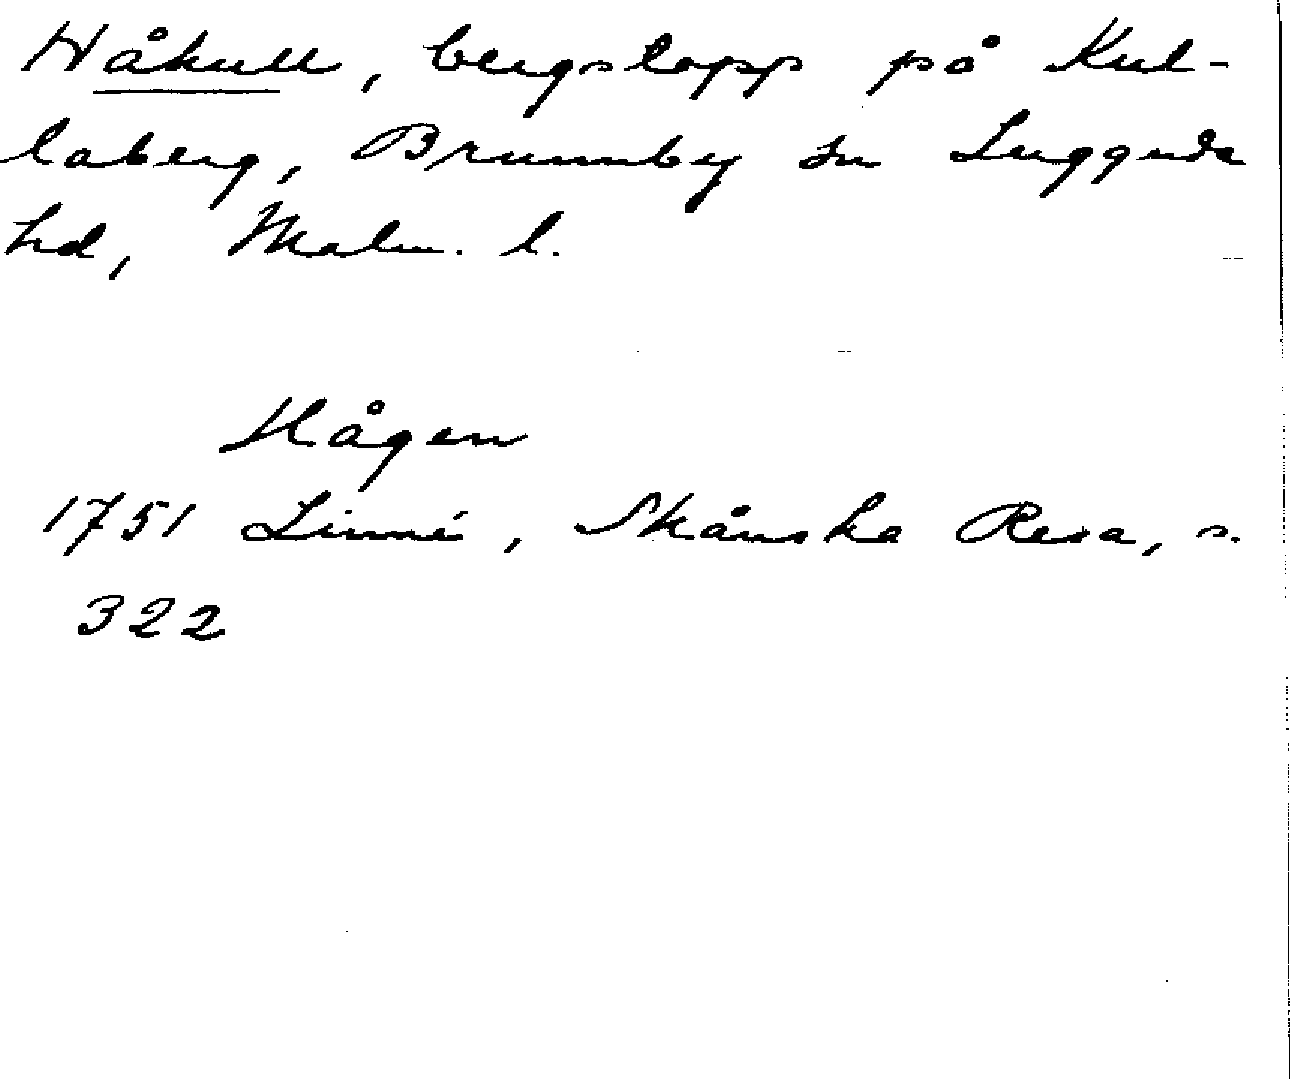 Håkull, bergstopp på Kul-
laberg, Brunnby sn Luggude
hd, Malm. l.
Hågen
1751 Linné, Skånska Resa, s.
322